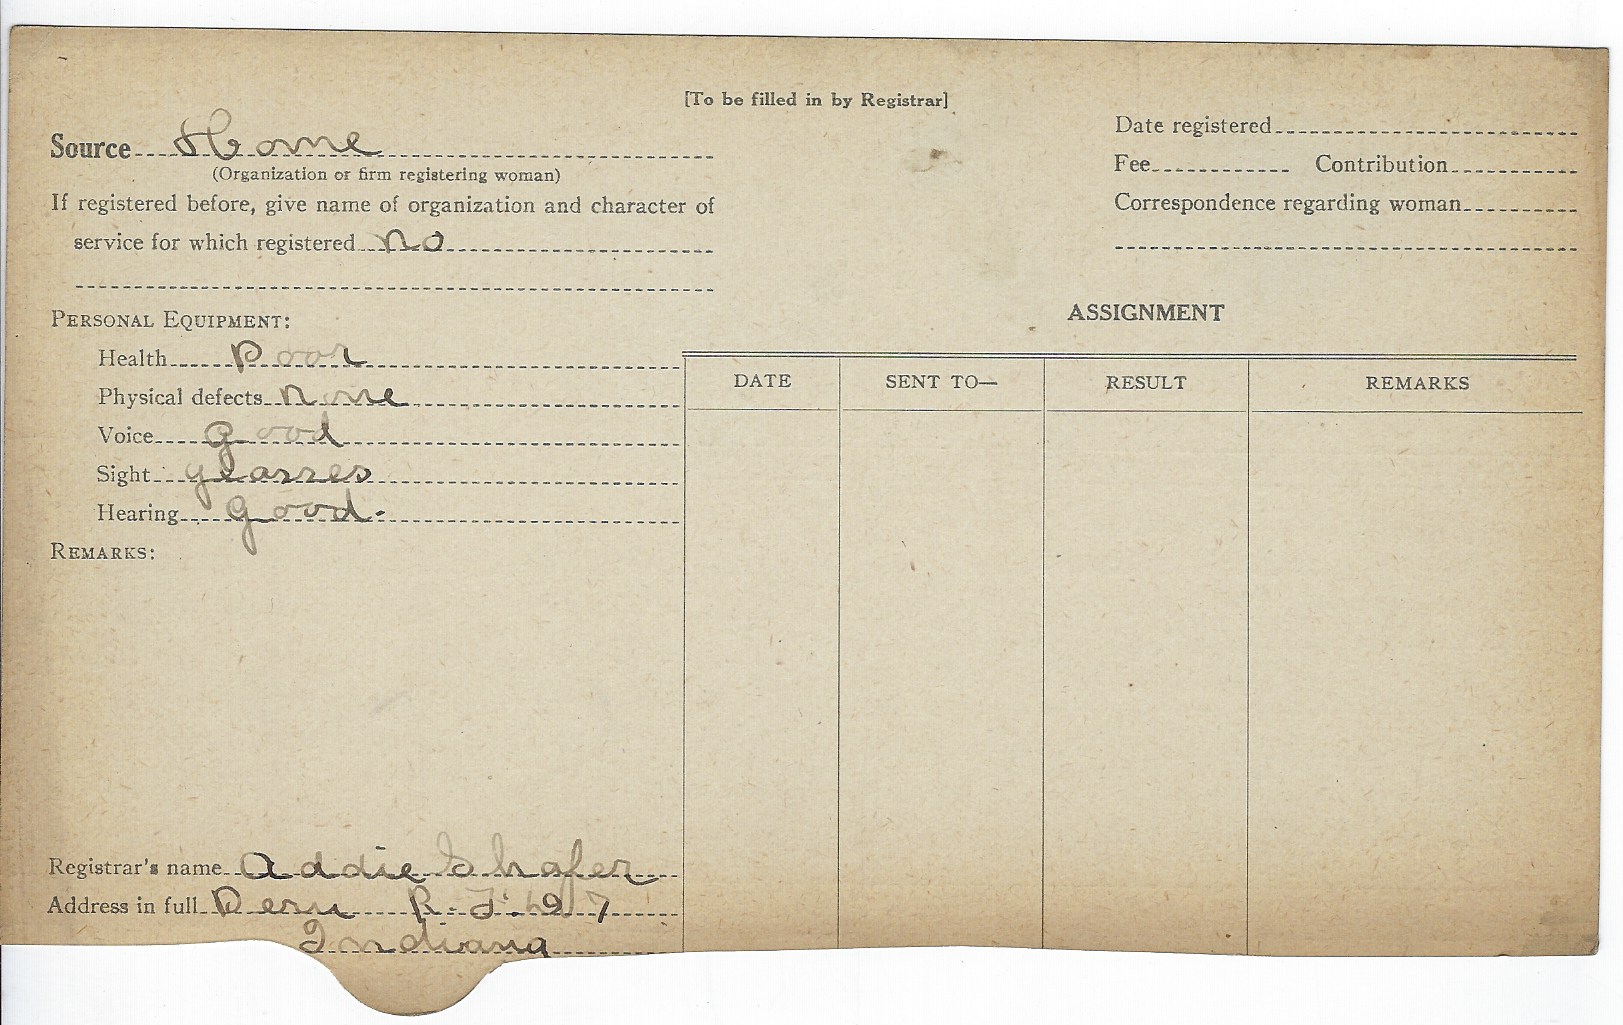 [To be filled in by Registrar]
Source Home
(Organization or firm registering woman)
If registered before, give name of organization and character of
service for which registered no
Date registered
Fee Contribution
Correspondence regarding woman
PERSONAL EQUIPMENT:
Health Poor
Physical defects None
Voice Good
Sight glasses
Hearing Good.
REMARKS:
ASSIGNMENT
DATE SENT TO— RESULT REMARKS
Registrar's name Addie Shafer
Address in full Peru R. F. 7
Indiana